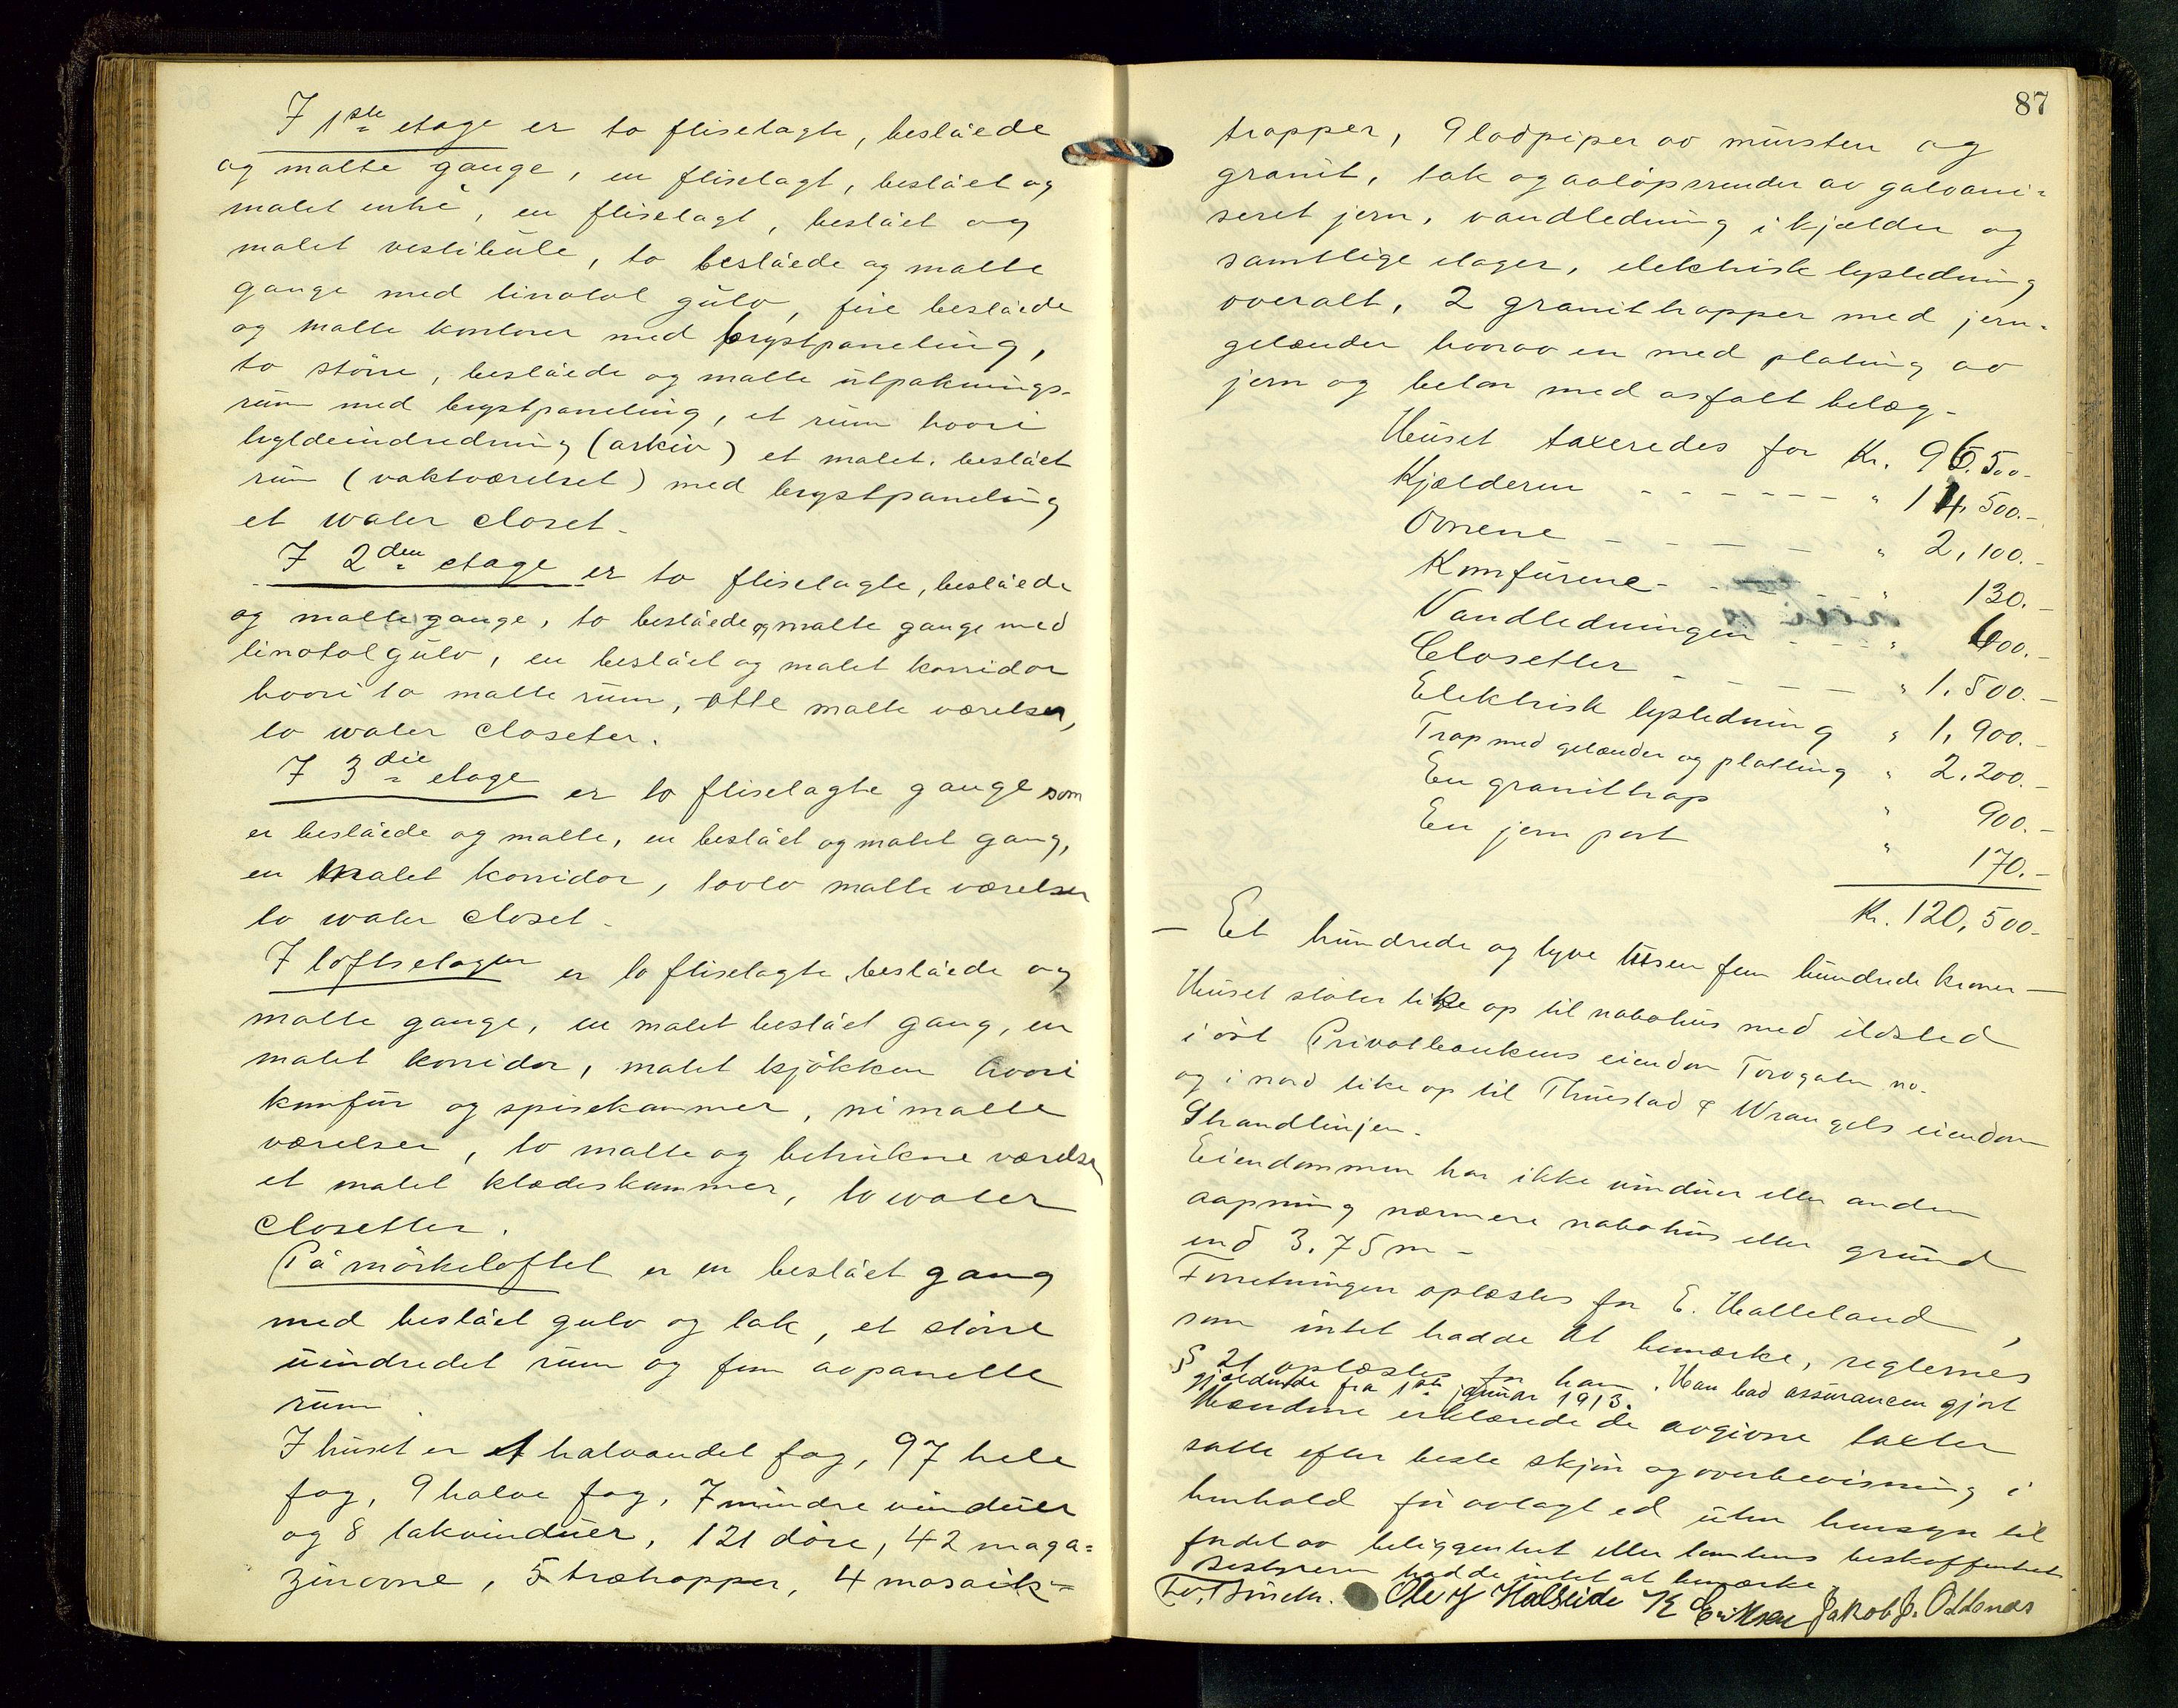 I 1ste etage er to fliselagte, beslåede
og malte gange, en fliselagt, beslået og
malet entré, en fliselagt, beslået og
malet vestibule, to beslåede og malte
gange med linotol gulv, fire beslåede
og malte kontorer med brystpaneling,
to större, beslåede og malte utpaknings-
rum med brystpaneling, et rum hvori
hyldeindredning (arkiv) et malet, beslået
rum (vaktværelset) med brystpaneling
et water closet.
I 2den etage er to fliselagte, beslåede
og malte gange, to beslåede og malte gange med
linotol gulv, en beslået og malet korridor
hvori to malte rum, otte malte værelser,
to water closeter.
I 3die etage er to fliselagte gange som
er beslåede og malte, en beslået og malet gang,
en malet korridor, tovlv malte værelser
to water closet.
I loftsetagen er to fliselagte, beslåede og
malte gange, en malet beslået gang, en
malet korridor, malet kjökken hvori
komfur og spisekammer, ni malte
værelser, to malte og betrukne værelser
et malet klædeskammer, to water
closetter.
På mörkeloftet er en beslået gang
med beslået gulv og tak, et större
uindredet rum og fem avpanelte
rum.
I huset er et halvandet fag, 97 hele
fag, 9 halve fag, 7 mindre vinduer
og 8 takvinduer, 121 döre, 42 maga=
zinovne, 5 trætrapper, 4 mosaik=
87
trapper, 9 lodpiper av mursten og
granit, tak og avlöpsrender av galvani=
seret jern, vandledning i kjælder og
samtlige etager, elektrisk lysledning
overalt, 2 granittrapper med jern-
gelænder hvorav en med plating av
jern og beton med asfalt belæg-
Huset taxeredes for Kr. 96.500.-
Kjælderen - - - - - - " 14,500.-
Ovnene - - - - - " 2,100.-
Komfurene - - - - " 130.-
Vandledningen - - - " 600.-
Closetter - - - - - " 1.500.-
Elektrisk lysledning " 1,900.-
Trap med gelænder og platting " 2.200.-
En granittrap " 900.-
En jern port " 170.-
Kr. 120,500.-
- Et hundrede og tyve tusen fem hundrede kroner -
Huset stöter like op til nabohus med ildsted
i öst Privatbankens eiendom Torvgaten no.
og i nord like op til Thuestad & Wrangels eiendom
Strandlinjen.
Eiendommen har ikke vinduer eller anden
aapning nærmere nabohus eller grund
end 3.75 m -
Forretningen oplæstes for E. Halleland,
som intet hadde at bemærke, reglernes
§ 21 oplæstes for ham. Han bad assurancen gjort
gjældende fra 1ste januar 1913.
Mændene erklærede de avgivne taxter
satte efter beste skjön og overbevisning i
henhold för avlagt ed uten hensyn til
fordel av beliggenhet eller tomtens beskaffenhet
Bestyreren hadde intet at bemærke.
Ole J Halseide K Eriksen Jakob J. Odland